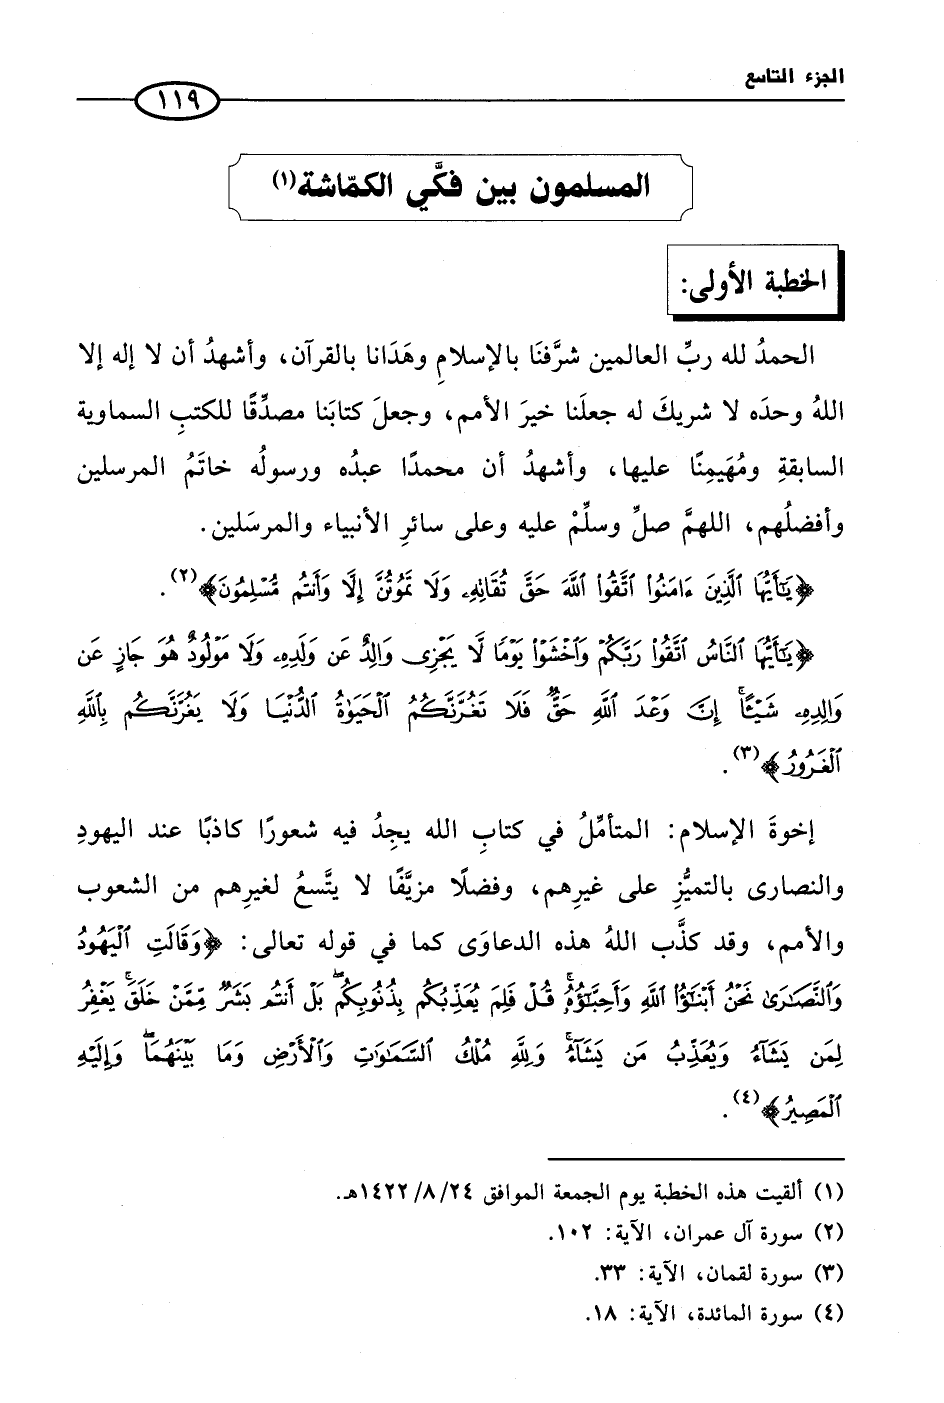 الجزء التاسع
١١٩
المسلمون بين فكَّي الكمّاشة(١)
الخطبة الأولى:
الحمدُ لله ربِّ العالمين شرَّفنَا بالإسلامِ وهَدَانا بالقرآن، وأشهدُ أن لا إله إلا
اللهُ وحدَه لا شريكَ له جعلَنا خيرَ الأمم، وجعلَ كتابَنا مصدِّقًا للكتبِ السماوية
السابقةِ ومُهَيمِنًا عليها، وأشهدُ أن محمدًا عبدُه ورسولُه خاتَمُ المرسلين
وأفضلُهم، اللهمَّ صلِّ وسلِّمْ عليه وعلى سائرِ الأنبياء والمرسَلين.
﴿يَٰٓأَيُّهَا ٱلَّذِينَ ءَامَنُوا۟ ٱتَّقُوا۟ ٱللَّهَ حَقَّ تُقَاتِهِۦ وَلَا تَمُوتُنَّ إِلَّا وَأَنتُم مُّسْلِمُونَ﴾(٢).
﴿يَٰٓأَيُّهَا ٱلنَّاسُ ٱتَّقُوا۟ رَبَّكُمْ وَٱخْشَوْا۟ يَوْمًا لَّا يَجْزِى وَالِدٌ عَن وَلَدِهِۦ وَلَا مَوْلُودٌ هُوَ جَازٍ عَن
وَالِدِهِۦ شَيْـًٔا ۚ إِنَّ وَعْدَ ٱللَّهِ حَقٌّ ۖ فَلَا تَغُرَّنَّكُمُ ٱلْحَيَوٰةُ ٱلدُّنْيَا وَلَا يَغُرَّنَّكُم بِٱللَّهِ
ٱلْغَرُورُ﴾(٣).
إخوةَ الإسلام: المتأمِّلُ في كتابِ الله يجِدُ فيه شعورًا كاذبًا عند اليهودِ
والنصارى بالتميُّزِ على غيرِهم، وفضلًا مزيَّفًا لا يتَّسعُ لغيرِهم من الشعوب
والأمم، وقد كذَّب اللهُ هذه الدعاوَى كما في قوله تعالى: ﴿وَقَالَتِ ٱلْيَهُودُ
وَٱلنَّصَٰرَىٰ نَحْنُ أَبْنَٰٓؤُا۟ ٱللَّهِ وَأَحِبَّٰٓؤُهُۥ ۚ قُلْ فَلِمَ يُعَذِّبُكُم بِذُنُوبِكُم ۖ بَلْ أَنتُم بَشَرٌ مِّمَّنْ خَلَقَ ۚ يَغْفِرُ
لِمَن يَشَآءُ وَيُعَذِّبُ مَن يَشَآءُ ۚ وَلِلَّهِ مُلْكُ ٱلسَّمَٰوَٰتِ وَٱلْأَرْضِ وَمَا بَيْنَهُمَا ۖ وَإِلَيْهِ
ٱلْمَصِيرُ﴾(٤).
(١) ألقيت هذه الخطبة يوم الجمعة الموافق ٢٤/ ٨/ ١٤٢٢هـ.
(٢) سورة آل عمران، الآية: ١٠٢.
(٣) سورة لقمان، الآية: ٣٣.
(٤) سورة المائدة، الآية: ١٨.